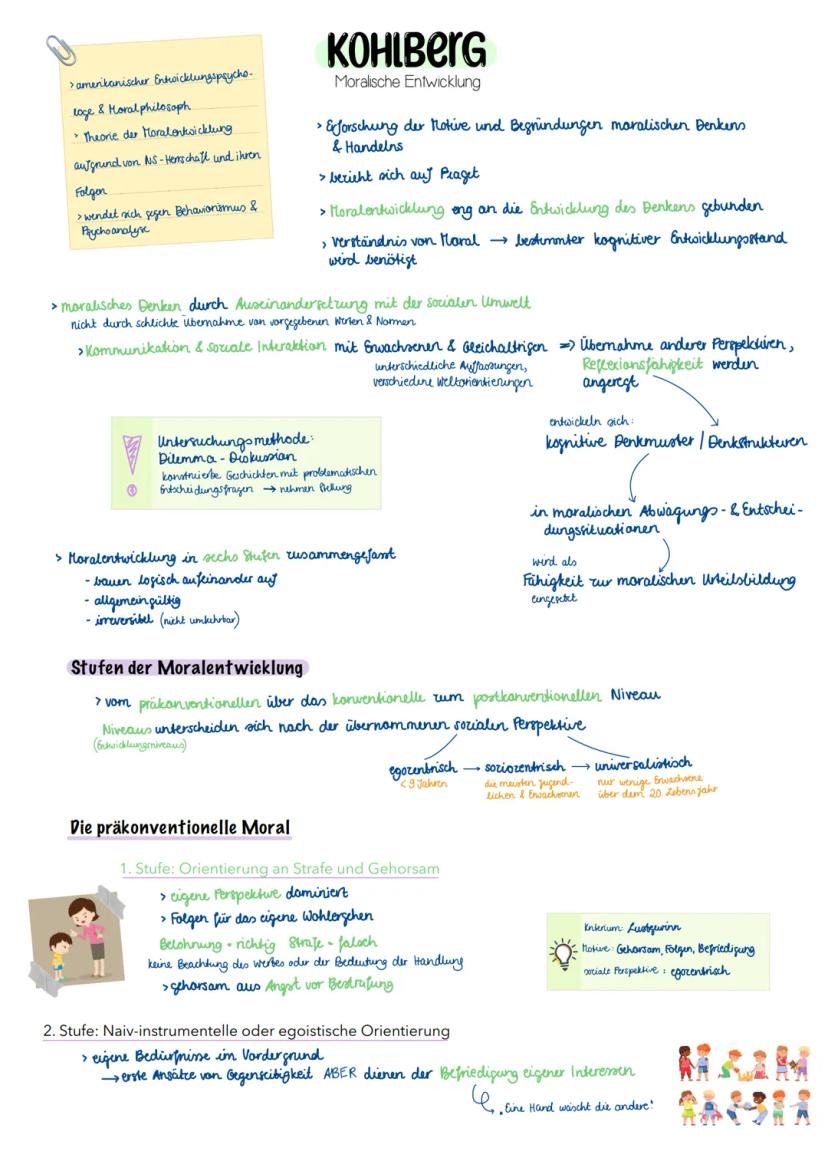 KOHLBERG
Moralische Entwicklung
> amerikanischer Entwicklungspsycho-
loge & Moralphilosoph
> Theorie der Moralentwicklung
aufgrund von NS-Herrschaft und ihren
Folgen
> wendet sich gegen Behaviorismus &
Psychoanalyse
> Erforschung der Motive und Begründungen moralischen Denkens
& Handelns
> bezieht sich auf Piaget
> Moralentwicklung eng an die Entwicklung des Denkens gebunden
> Verständnis von Moral → bestimmter kognitiver Entwicklungsstand
wird benötigt
> moralisches Denken durch Auseinandersetzung mit der sozialen Umwelt
nicht durch schlichte Übernahme von vorgegebenen Werten & Normen
> Kommunikation & soziale Interaktion mit Erwachsenen & Gleichaltrigen => Übernahme anderer Perspektiven,
unterschiedliche Auffassungen,
verschiedene Weltorientierungen
Reflexionsfähigkeit werden
angeregt
entwickeln sich:
kognitive Denkmuster / Denkstrukturen
in moralischen Abwägungs- & Entschei-
dungssituationen
wird als
Fähigkeit zur moralischen Urteilsbildung
eingesetzt
Untersuchungsmethode:
Dilemma - Diskussion
konstruierte Geschichten mit problematischen
Entscheidungsfragen → nehmen Stellung
> Moralentwicklung in sechs Stufen zusammengefasst
- bauen logisch aufeinander auf
- allgemeingültig
- irreversibel (nicht umkehrbar)
Stufen der Moralentwicklung
> vom präkonventionellen über das konventionelle zum postkonventionellen Niveau
Niveaus unterscheiden sich nach der übernommenen sozialen Perspektive
(Entwicklungsniveaus)
egozentrisch → soziozentrisch → universalistisch
< 9 Jahren
die meisten Jugend-
lichen & Erwachsenen
nur wenige Erwachsene
über dem 20. Lebensjahr
Die präkonventionelle Moral
1. Stufe: Orientierung an Strafe und Gehorsam
> eigene Perspektive dominiert
> Folgen für das eigene Wohlergehen
Belohnung = richtig Strafe = falsch
keine Beachtung des Wertes oder der Bedeutung der Handlung
> gehorsam aus Angst vor Bestrafung
Kriterium: Lustgewinn
Motive: Gehorsam, Folgen, Befriedigung
soziale Perspektive: egozentrisch
2. Stufe: Naiv-instrumentelle oder egoistische Orientierung
> eigene Bedürfnisse im Vordergrund
→ erste Ansätze von Gegenseitigkeit ABER dienen der Befriedigung eigener Interessen
"Eine Hand wäscht die andere"